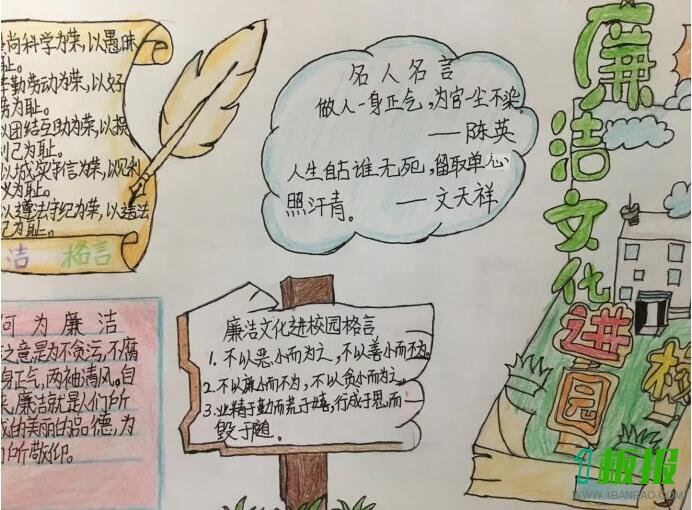 尚科学为荣,以愚昧
耻。
辛勤劳动为荣,以好
劳为耻。
以团结互助为荣,以损
利己为耻。
以诚实守信为荣,以见利
义为耻。
以遵法守纪为荣,以违法
纪为耻。
洁 格言
名人名言
做人一身正气,为官一尘不染。
——陈英
人生自古谁无死,留取单心
照汗青。 ——文天祥
何为廉洁
之意是为不贪污,不腐
身正气,两袖清风。自
来,廉洁就是人们所
成的美丽的品德,为
们所敬仰。
廉洁文化进校园格言
1. 不以恶小而为之,不以善小而不为。
2. 不以廉小而不为,不以贪小而为之。
3. 业精于勤而荒于嬉,行成于思而
毁于随。
廉洁文化进
校
园
1板报
WWW.1BANBAO.COM